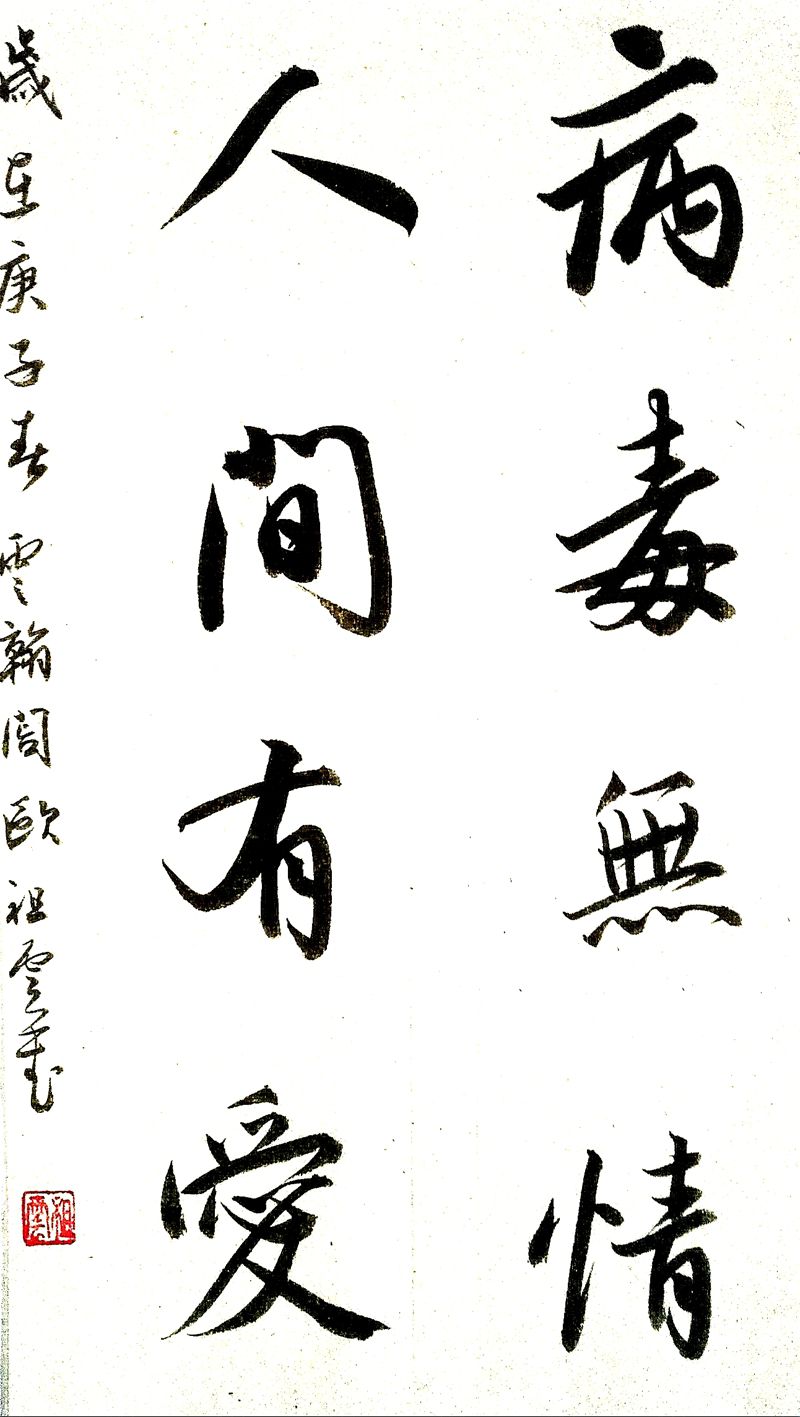 病毒無情
人間有愛
歲在庚子春雲翰閣歐祖雲書
祖雲